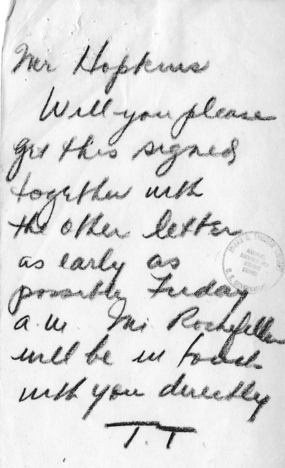 Mr Hopkins
Will you please
get this signed
together with
the other letter
as early as
possible Friday
a.m. Mr Rockefeller
will be in touch
with you directly
T.T